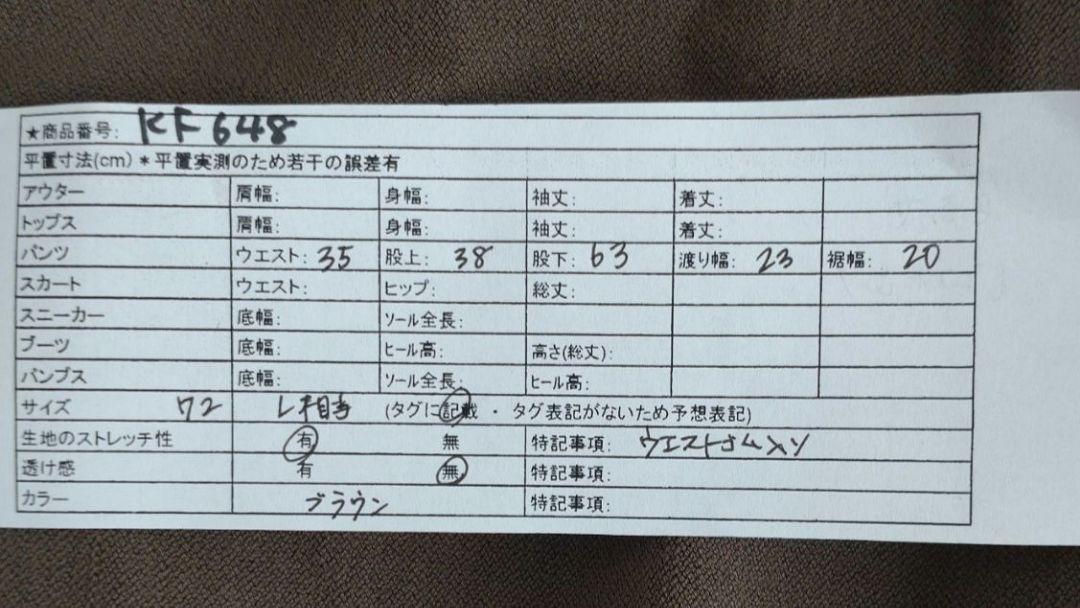 ★商品番号: KF648
平置寸法(cm)*平置実測のため若干の誤差有
アウター 肩幅: 身幅: 袖丈: 着丈:
トップス 肩幅: 身幅: 袖丈: 着丈:
パンツ ウエスト: 35 股上: 38 股下: 63 渡り幅: 23 裾幅: 20
スカート ウエスト: ヒップ: 総丈:
スニーカー 底幅: ソール全長:
ブーツ 底幅: ヒール高: 高さ(総丈):
パンプス 底幅: ソール全長: ヒール高:
サイズ 72 L相当 (タグに記載 ・ タグ表記がないため予想表記)
生地のストレッチ性 有 無 特記事項: ウエストゴム入り
透け感 有 無 特記事項:
カラー ブラウン 特記事項: